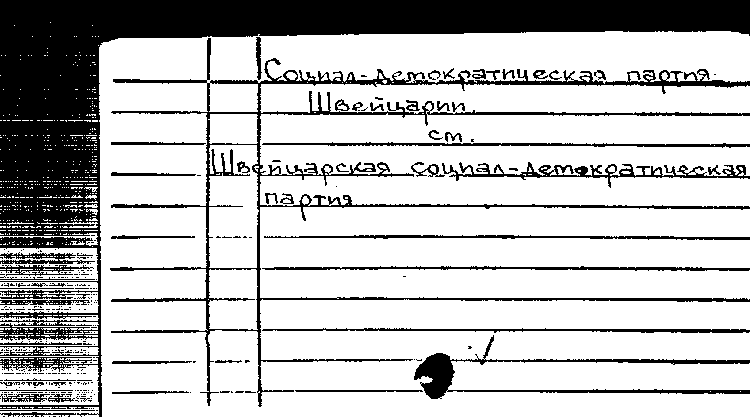 Социал-демократическая партия
Швейцарии.
см.
Швейцарская социал-демократическая
партия